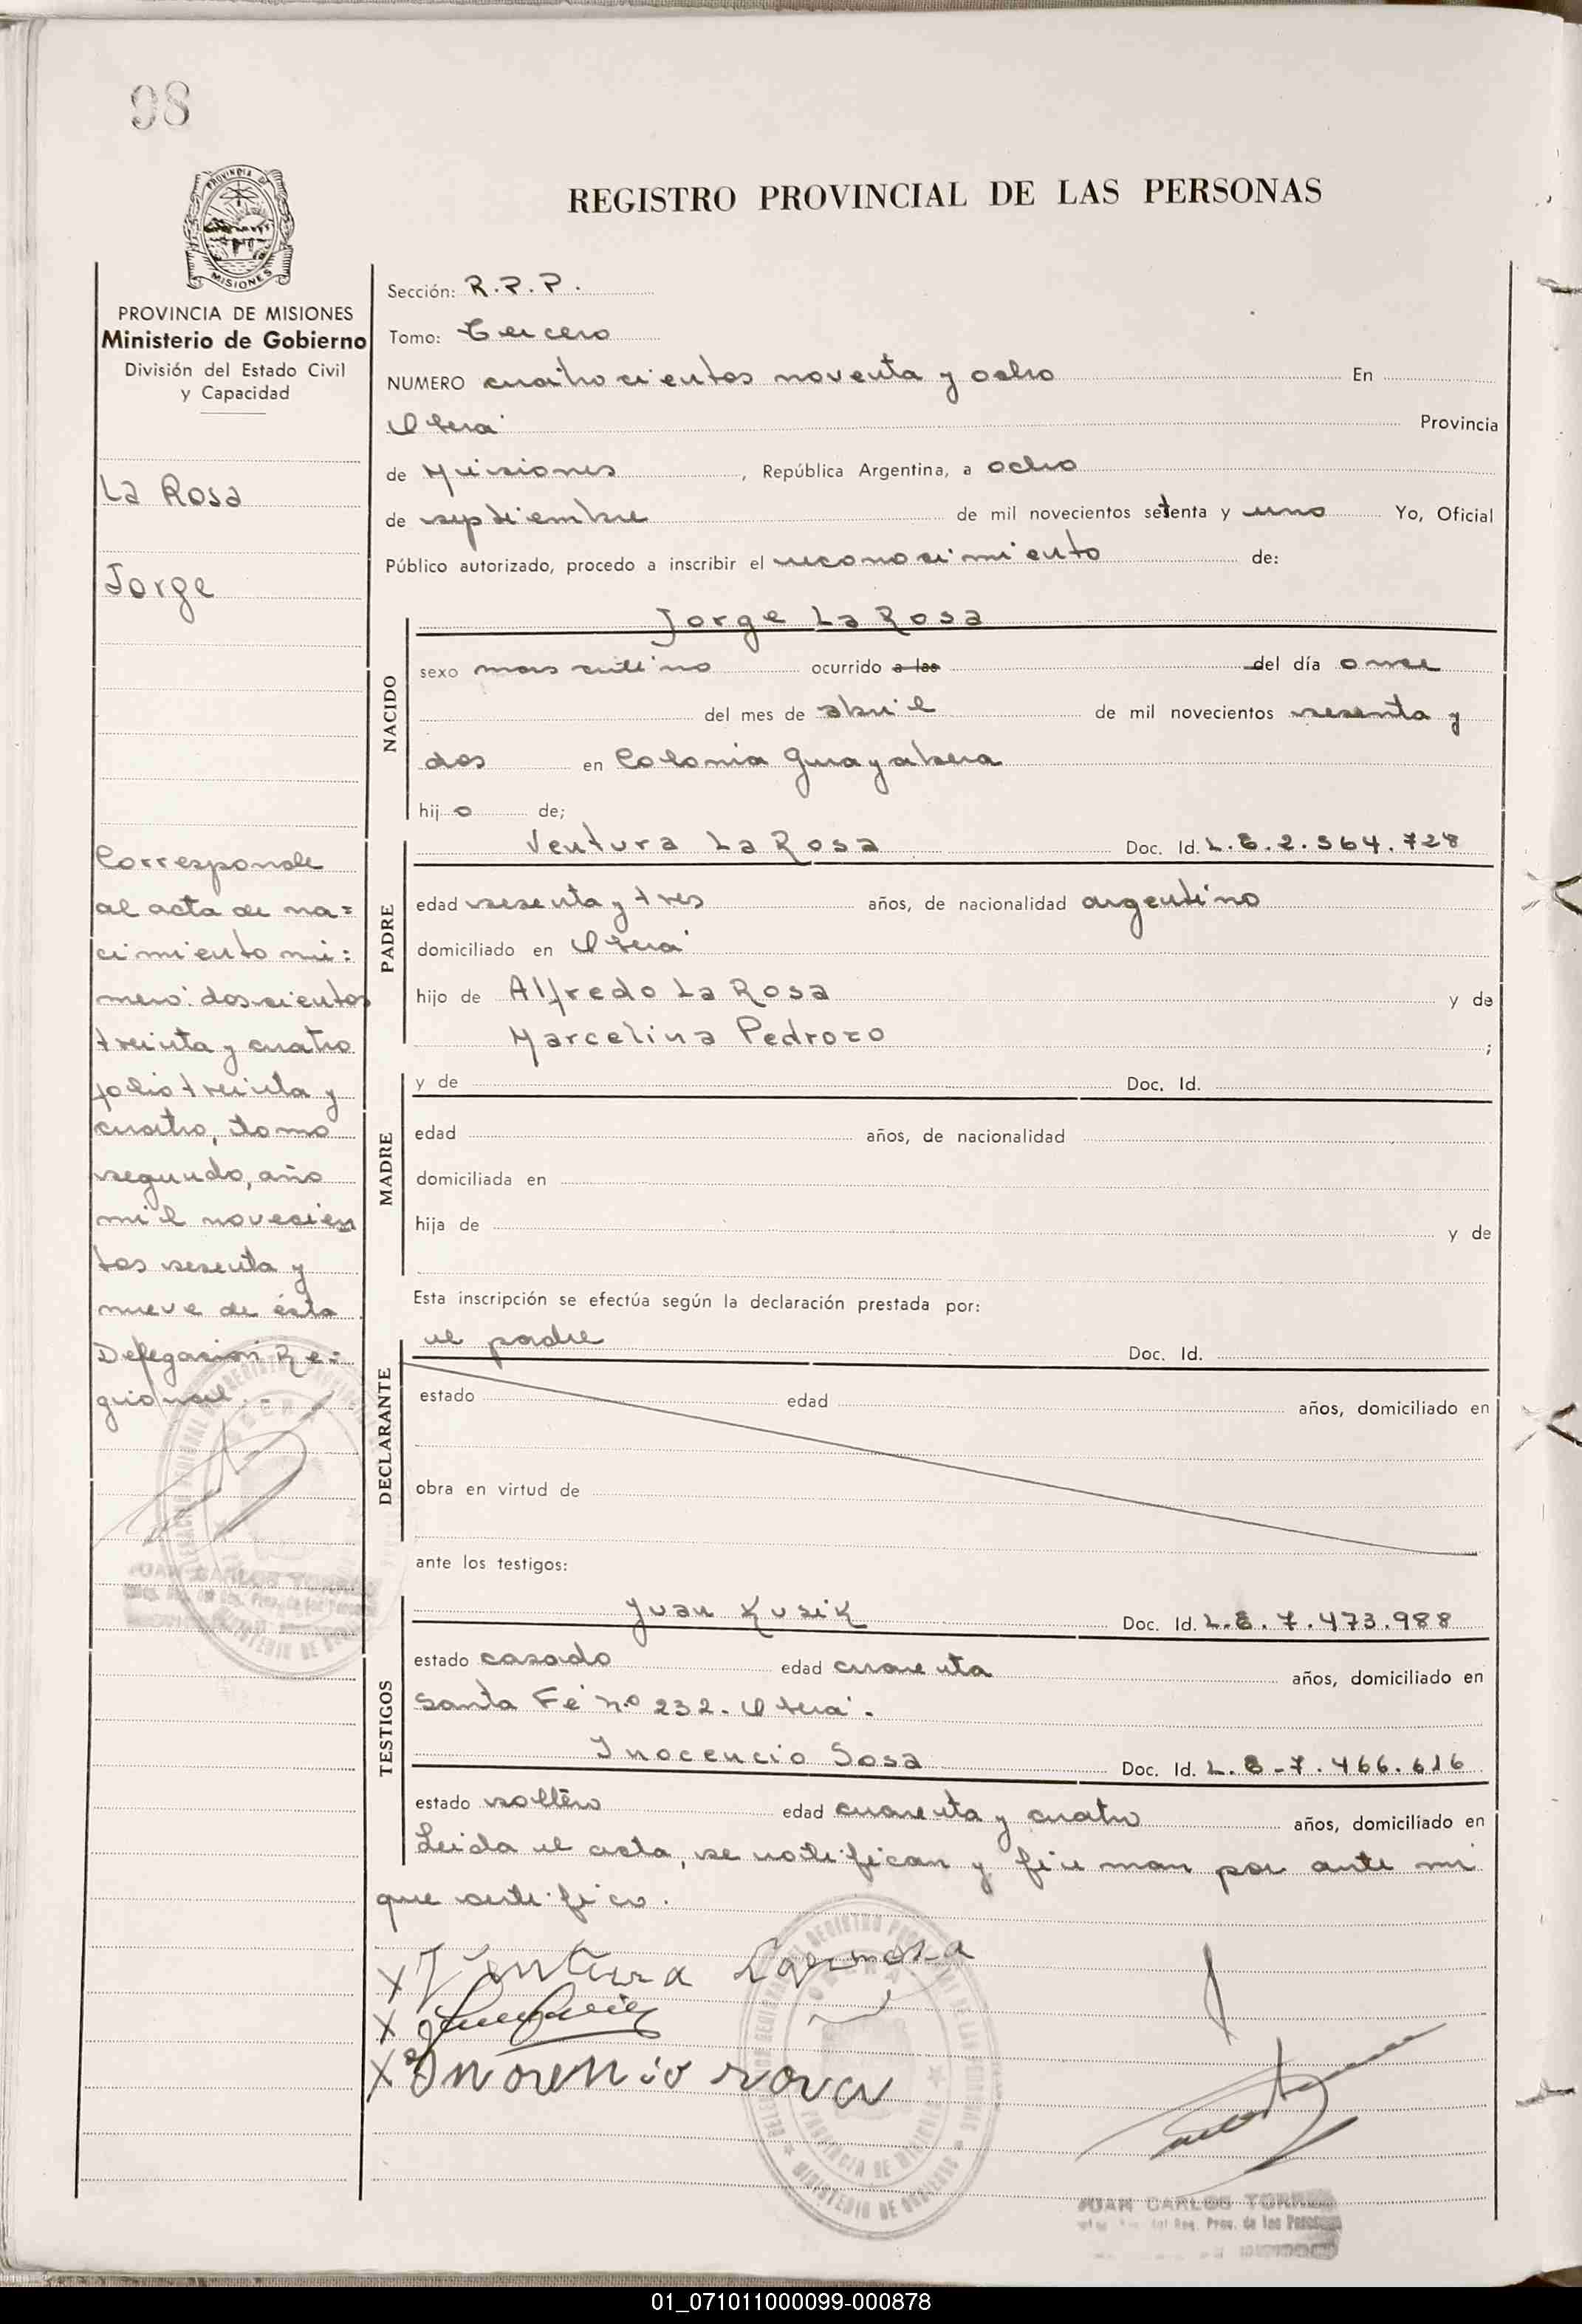 98
PROVINCIA DE
MISIONES
REGISTRO PROVINCIAL DE LAS PERSONAS
PROVINCIA DE MISIONES
Ministerio de Gobierno
División del Estado Civil
y Capacidad
La Rosa
Jorge
Corresponde
al acta de na=
cimiento nú:
mero: doscientos
treinta y cuatro
folio treinta y
cuatro, tomo
segundo, año
mil novecien
tos sesenta y
nueve de ésta
Delegación Re=
gional.-
JUAN CARLOS TORRES
Sección: R.P.P.
Tomo: Tercero
NUMERO cuatrocientos noventa y ocho En
Oberá Provincia
de Misiones, República Argentina, a ocho
de septiembre de mil novecientos setenta y uno Yo, Oficial
Público autorizado, procedo a inscribir el reconocimiento de:
NACIDO
Jorge La Rosa
sexo masculino ocurrido a las del día once
del mes de abril de mil novecientos sesenta y
dos en Colonia Guayabera
hijo de;
PADRE
Ventura La Rosa Doc. Id. L.E.2.564.728
edad sesenta y tres años, de nacionalidad argentino
domiciliado en Oberá
hijo de Alfredo La Rosa y de
Marcelina Pedrozo ;
MADRE
y de Doc. Id.
edad años, de nacionalidad
domiciliada en
hija de y de
Esta inscripción se efectúa según la declaración prestada por:
DECLARANTE
el padre Doc. Id.
estado edad años, domiciliado en
obra en virtud de
ante los testigos:
TESTIGOS
Juan Kusik Doc. Id. L.E.7.473.988
estado casado edad cuarenta años, domiciliado en
Santa Fé n.º 232. Oberá.
Inocencio Sosa Doc. Id. L.E-7.466.616
estado soltero edad cuarenta y cuatro años, domiciliado en
Leida el acta, se notifican y firman por ante mi
que certifico.
X Ventura
X
X
OBERA
PROVINCIA DE MISIONES
MINISTERIO DE GOBIERNO
JUAN CARLOS TORRES
del Reg. Prov. de las Personas
01_071011000099-000878